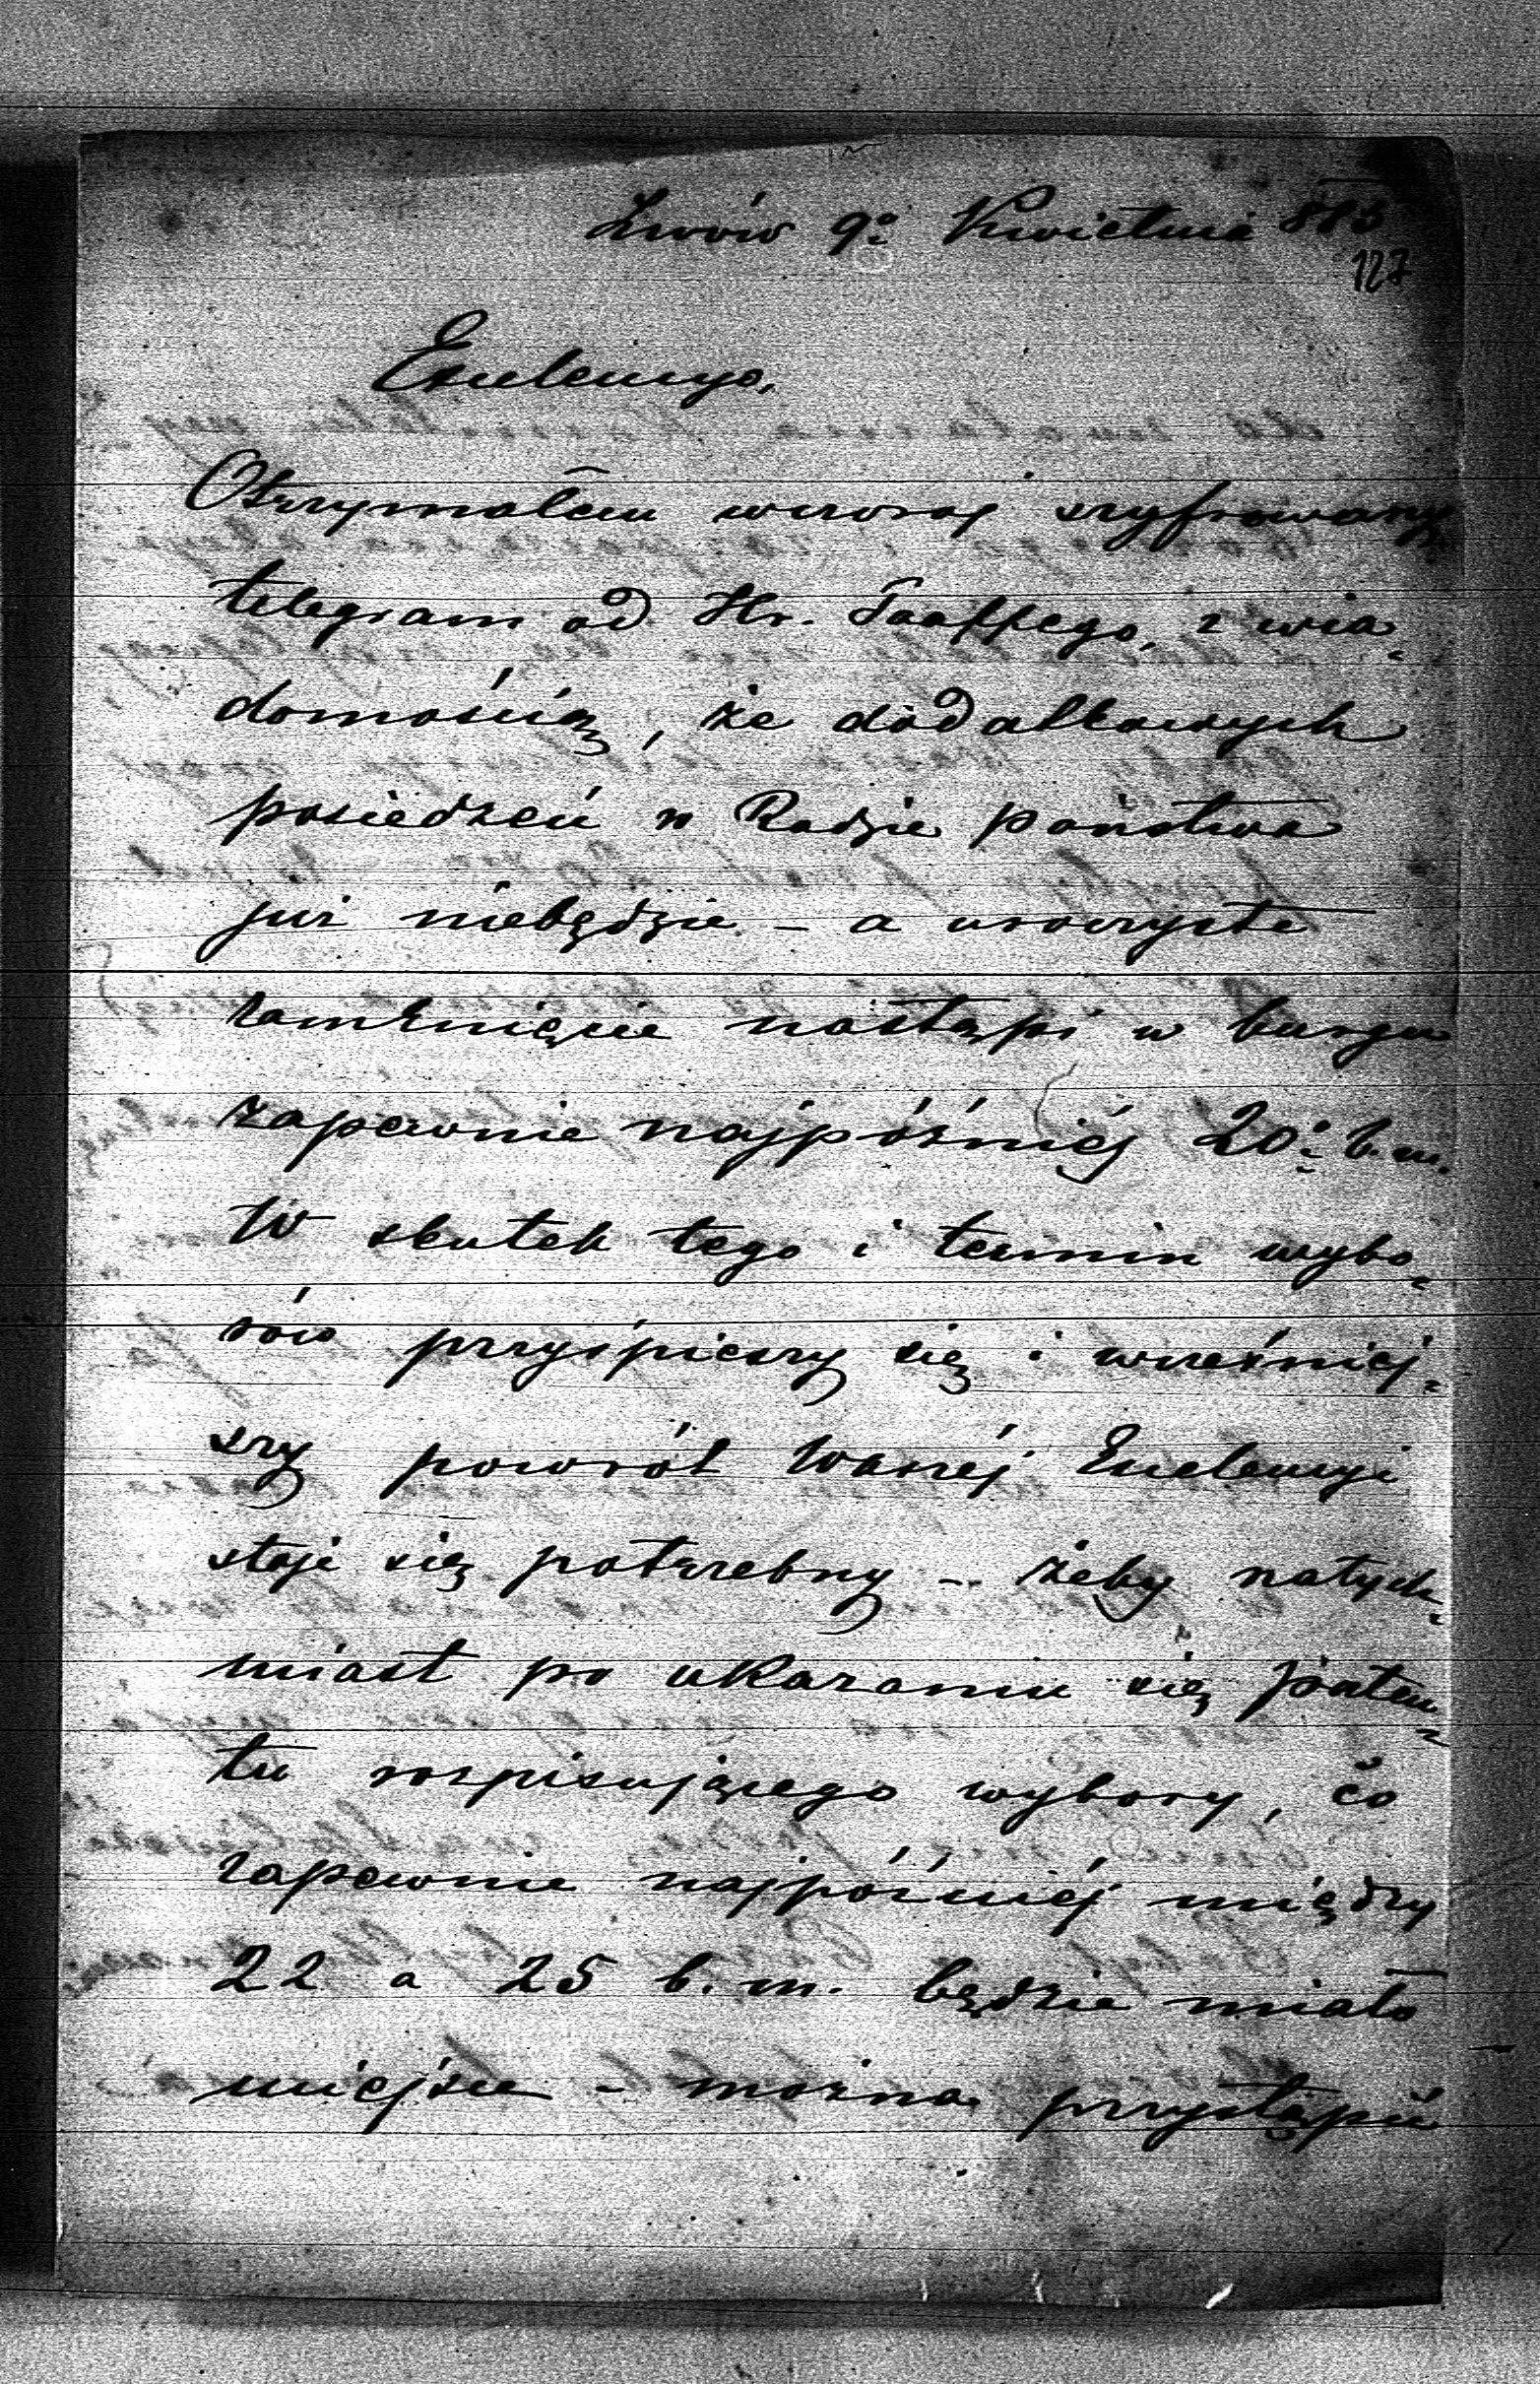 Lwów 9º Kwietnia 885
127
Excelencyo,
Otrzymałem wczoraj szyfrowany
telegram od Hr. Taaffego, z wia„
domością, że dodatkowych
posiedzeń w Radzie państwa
już niebędzie – a uroczyste
zamknięcie nastąpi w burgu
zapewnie najpóźniéj 20º b. m.
W skutek tego i termin wybo„
rów przyśpieszy się i wcześniej„
szy powrót Waszéj Excelencyi
staje się potrzebny – żeby natych„
miast po ukazaniu się paten„
tu rozpisującego wybory, co
zapewnie najpóźniéj między
22 a 25 b. m. będzie miało
miejsce – można przystąpić